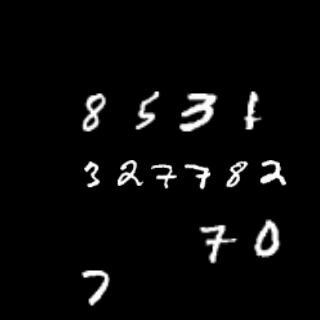 8 5 3 1
3 2 7 7 8 2
7 0
7